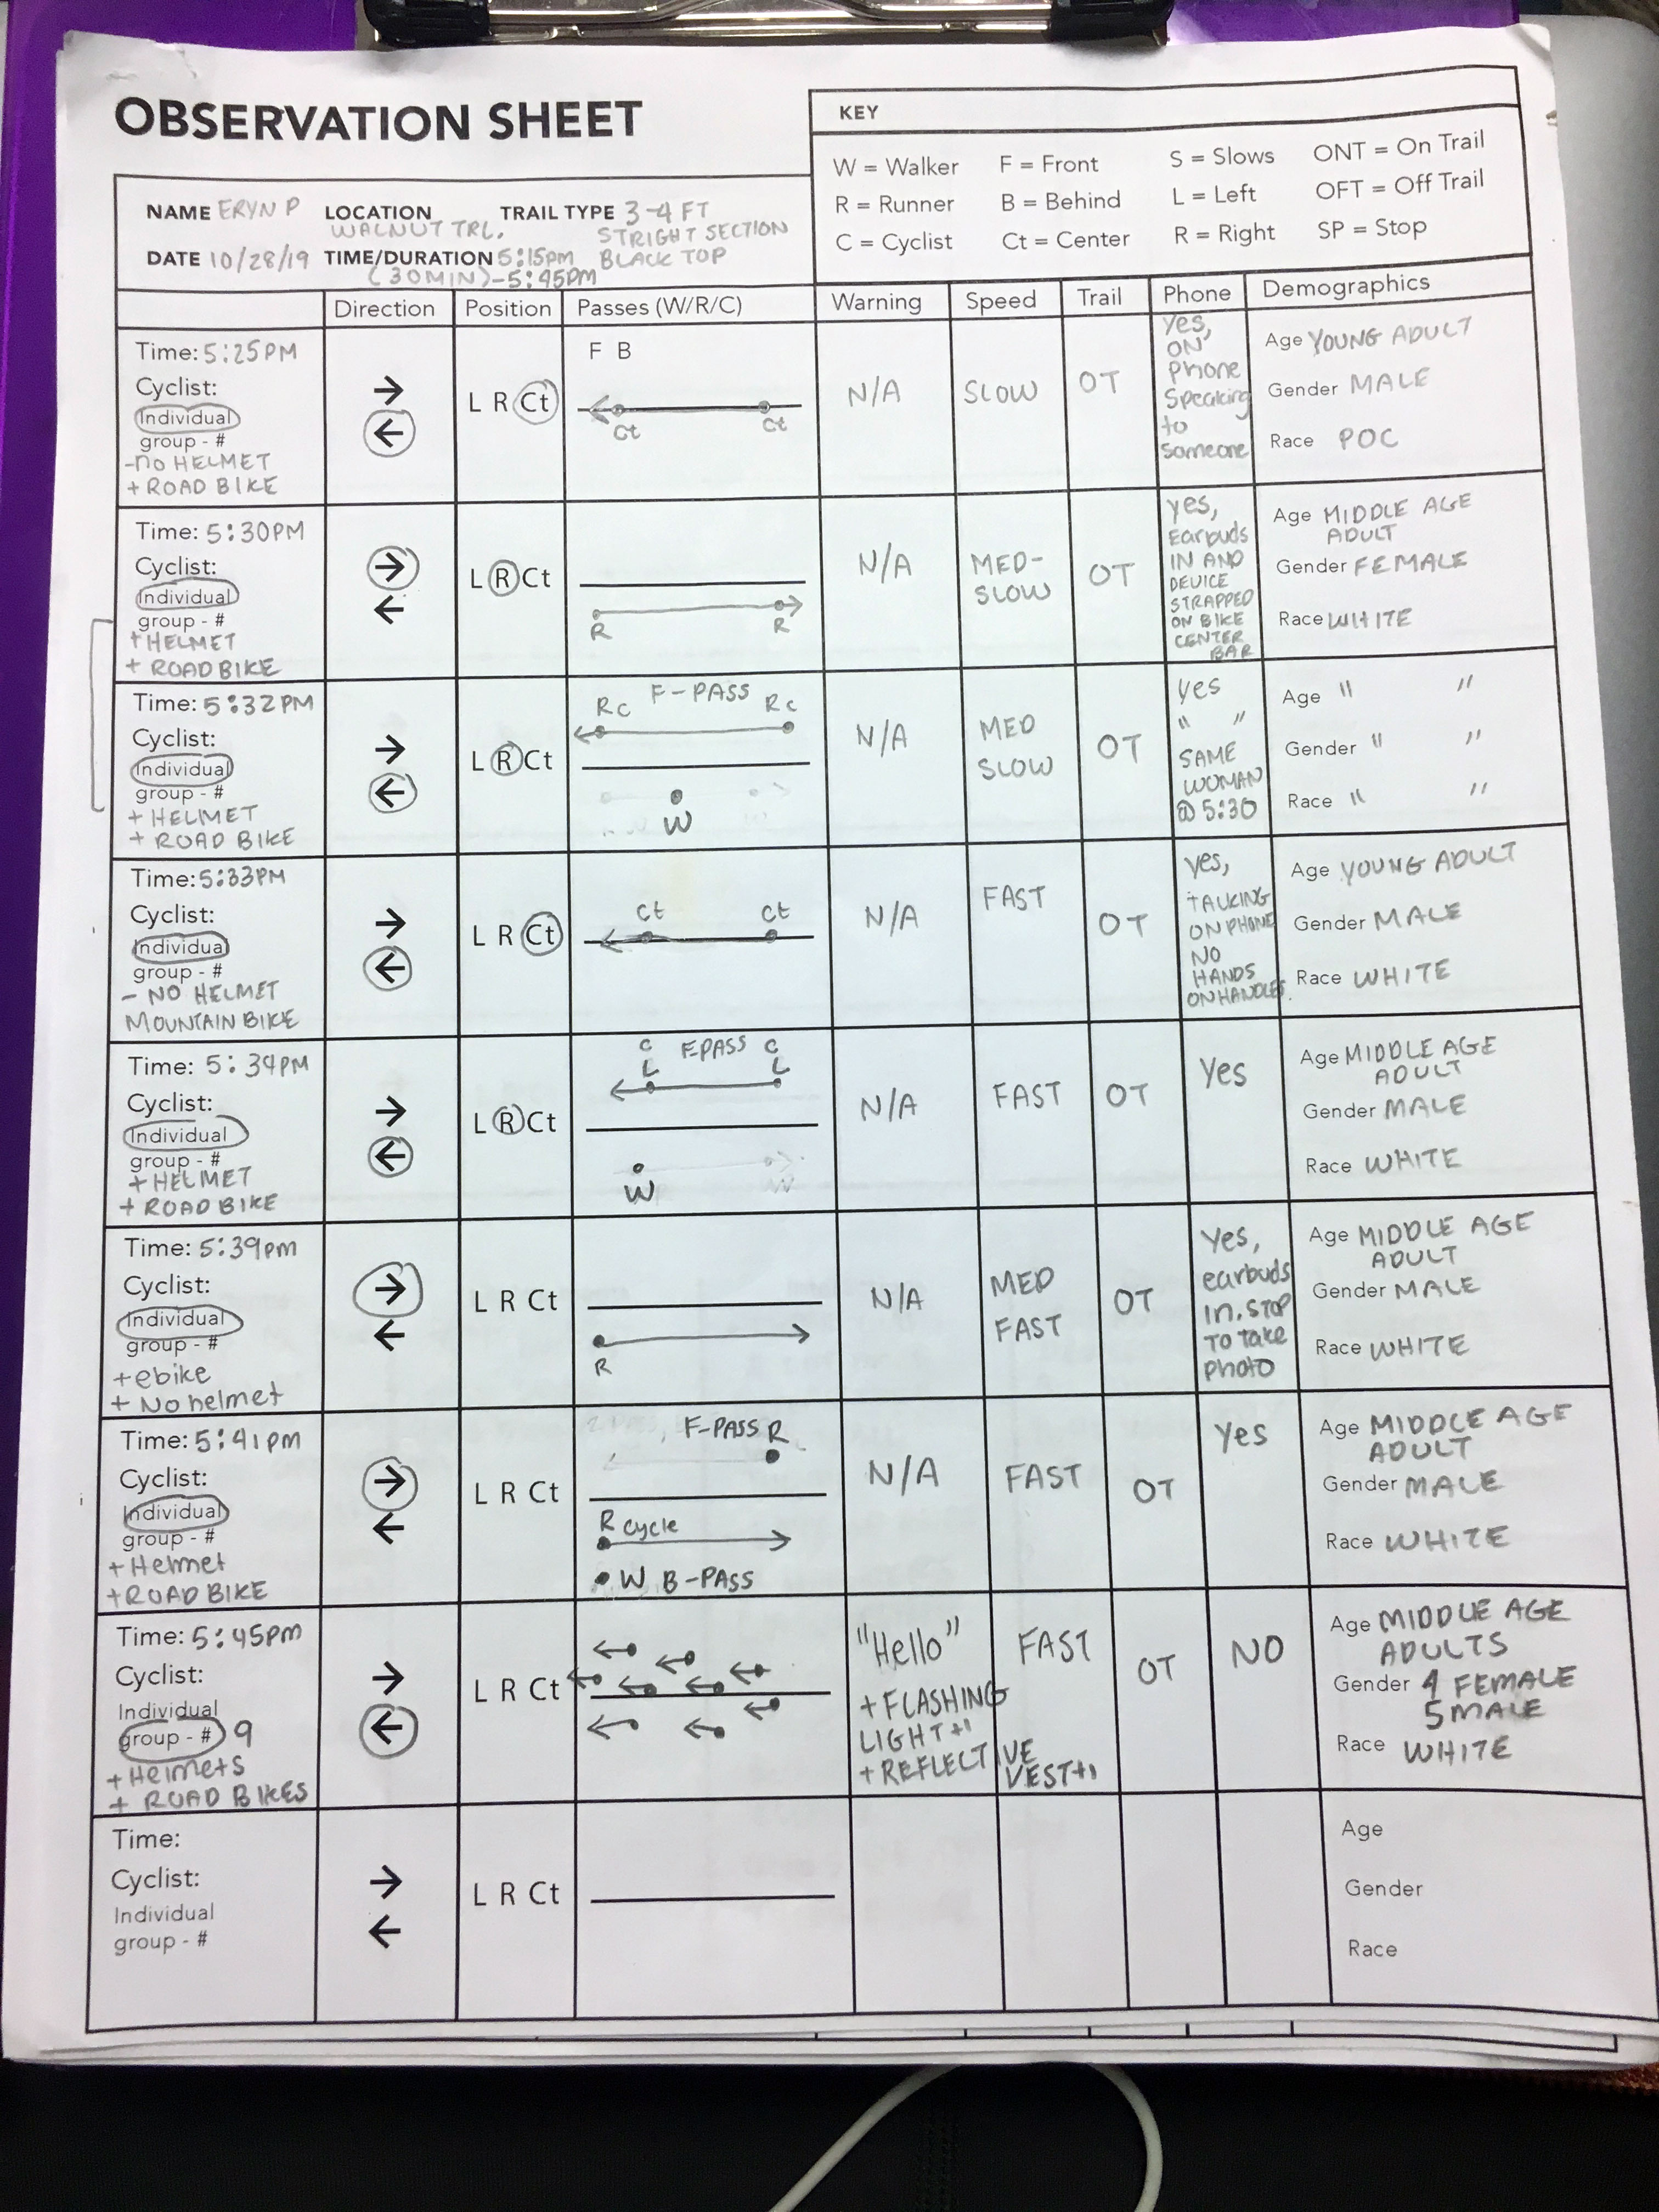 OBSERVATION SHEET
KEY
W = Walker F = Front S = Slows ONT = On Trail
R = Runner B = Behind L = Left OFT = Off Trail
C = Cyclist Ct = Center R = Right SP = Stop
NAME ERYN P LOCATION WALNUT TRL. TRAIL TYPE 3-4 FT
STRIGHT SECTION
DATE 10/28/19 TIME/DURATION 5:15pm BLACK TOP
(30MIN) -5:45pm
Direction Position Passes (W/R/C) Warning Speed Trail Phone Demographics
Time: 5:25PM
Cyclist:
Individual
group - #
-no HELMET
+ ROAD BIKE
→
←
L R Ct
F B
Ct Ct
N/A
SLOW
OT
Yes,
ON
phone
Speaking
to
Someone
Age YOUNG ADULT
Gender MALE
Race POC
Time: 5:30PM
Cyclist:
Individual
group - #
+HELMET
+ ROAD BIKE
→
←
L R Ct
R R
N/A
MED-
SLOW
OT
yes,
Earbuds
IN AND
DEVICE
STRAPPED
ON BIKE
CENTER
BAR
Age MIDDLE AGE
ADULT
Gender FEMALE
Race WHITE
Time: 5:32PM
Cyclist:
Individual
group - #
+ HELMET
+ ROAD BIKE
→
←
L R Ct
F-PASS
Rc Rc
W
N/A
MED
SLOW
OT
yes
" "
SAME
WOMAN
@ 5:30
Age " "
Gender " "
Race " "
Time: 5:33PM
Cyclist:
Individual
group - #
- NO HELMET
MOUNTAIN BIKE
→
←
L R Ct
Ct Ct
N/A
FAST
OT
yes,
TALKING
ON PHONE
NO
HANDS
ON HANDLES.
Age YOUNG ADULT
Gender MALE
Race WHITE
Time: 5:34PM
Cyclist:
Individual
group - #
+ HELMET
+ ROAD BIKE
→
←
L R Ct
C F-PASS C
L L
W
N/A
FAST
OT
Yes
Age MIDDLE AGE
ADULT
Gender MALE
Race WHITE
Time: 5:39pm
Cyclist:
Individual
group - #
+ebike
+ No helmet
→
←
L R Ct
R
N/A
MED
FAST
OT
Yes,
earbuds
In. STOP
TO Take
photo
Age MIDDLE AGE
ADULT
Gender MALE
Race WHITE
Time: 5:41pm
Cyclist:
Individual
group - #
+Helmet
+ROAD BIKE
→
←
L R Ct
F-PASS R
R cycle
W B-PASS
N/A
FAST
OT
Yes
Age MIDDLE AGE
ADULT
Gender MALE
Race WHITE
Time: 5:45pm
Cyclist:
Individual
group - # 9
+ Helmets
+ ROAD BIKES
→
←
L R Ct
"Hello"
+ FLASHING
LIGHT+1
+ REFLECTIVE
VEST+1
FAST
OT
NO
Age MIDDLE AGE
ADULTS
Gender 4 FEMALE
5 MALE
Race WHITE
Time:
Cyclist:
Individual
group - #
→
←
L R Ct
Age
Gender
Race